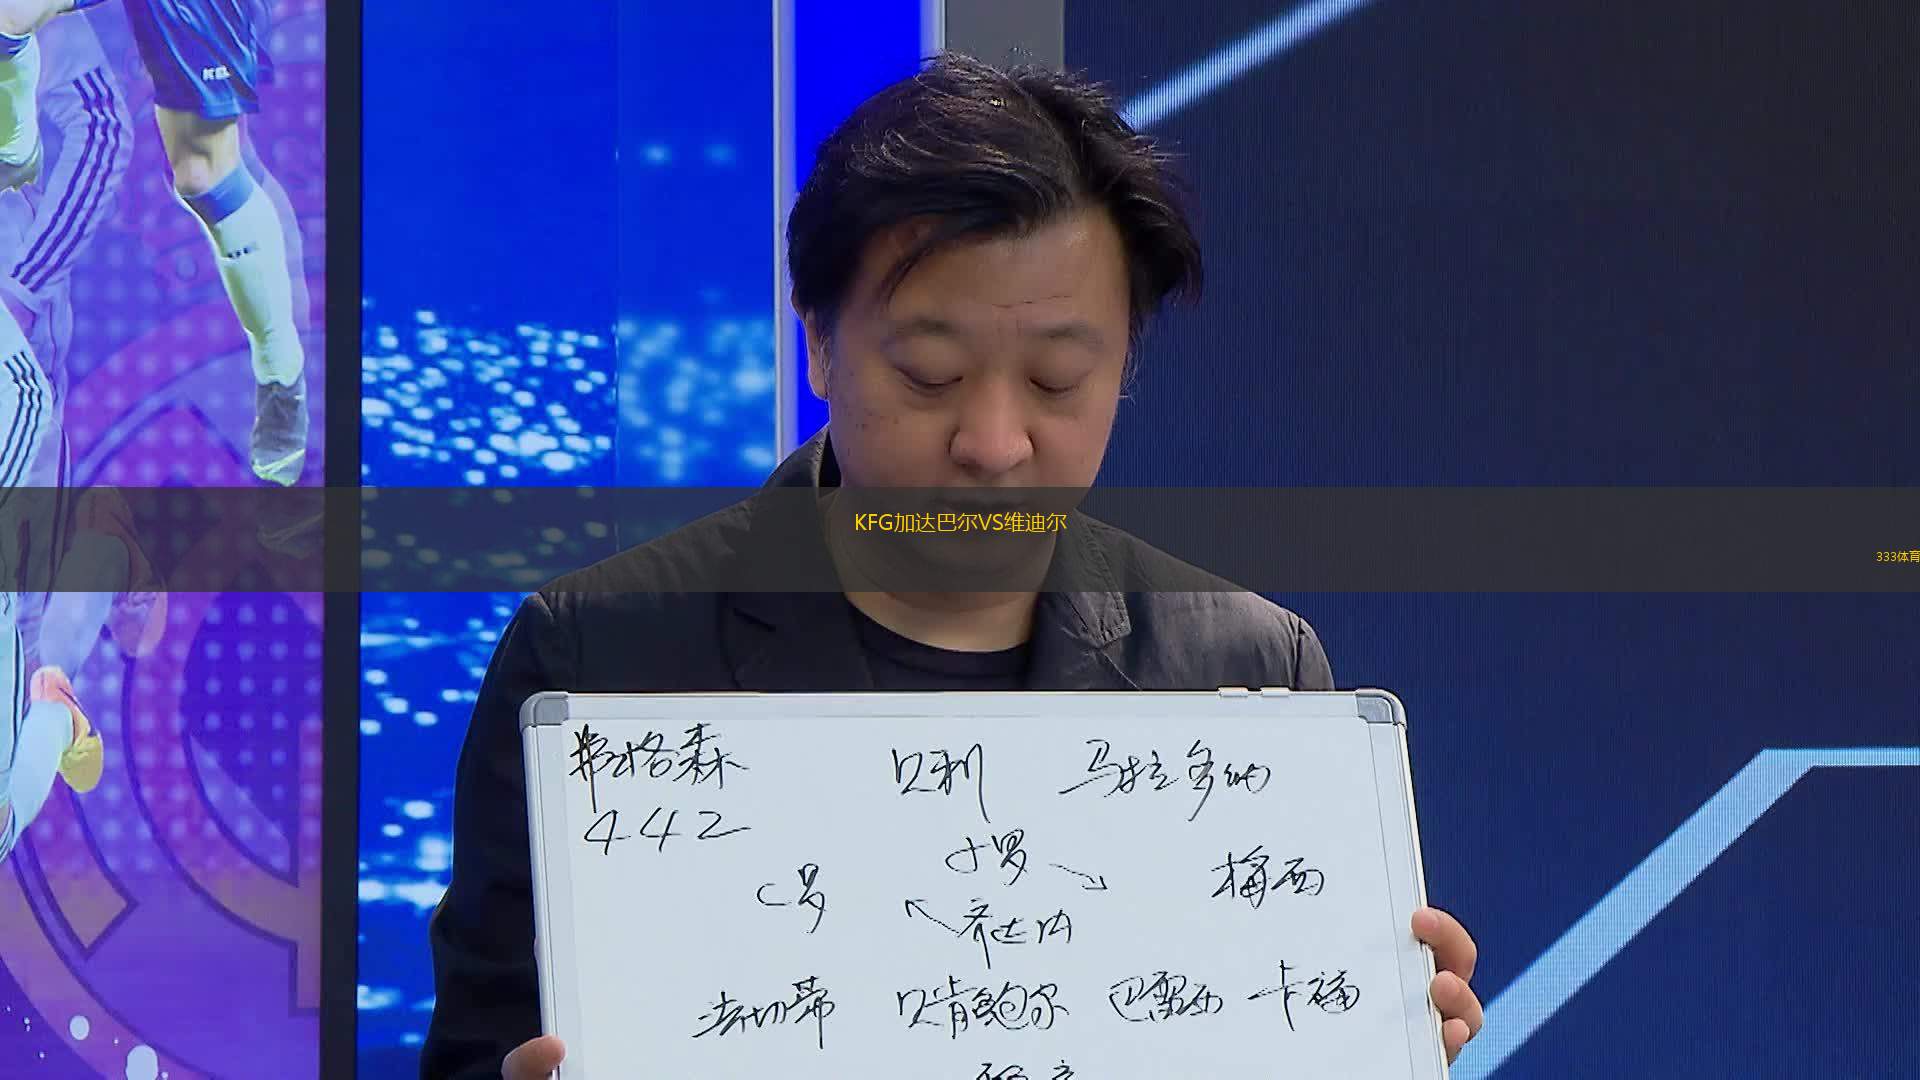 KFG加达巴尔VS维迪尔
333体育
弗格森 贝利 马拉多纳
442
小罗
C罗 梅西
齐达内
法切蒂 贝肯鲍尔 巴雷西 卡福